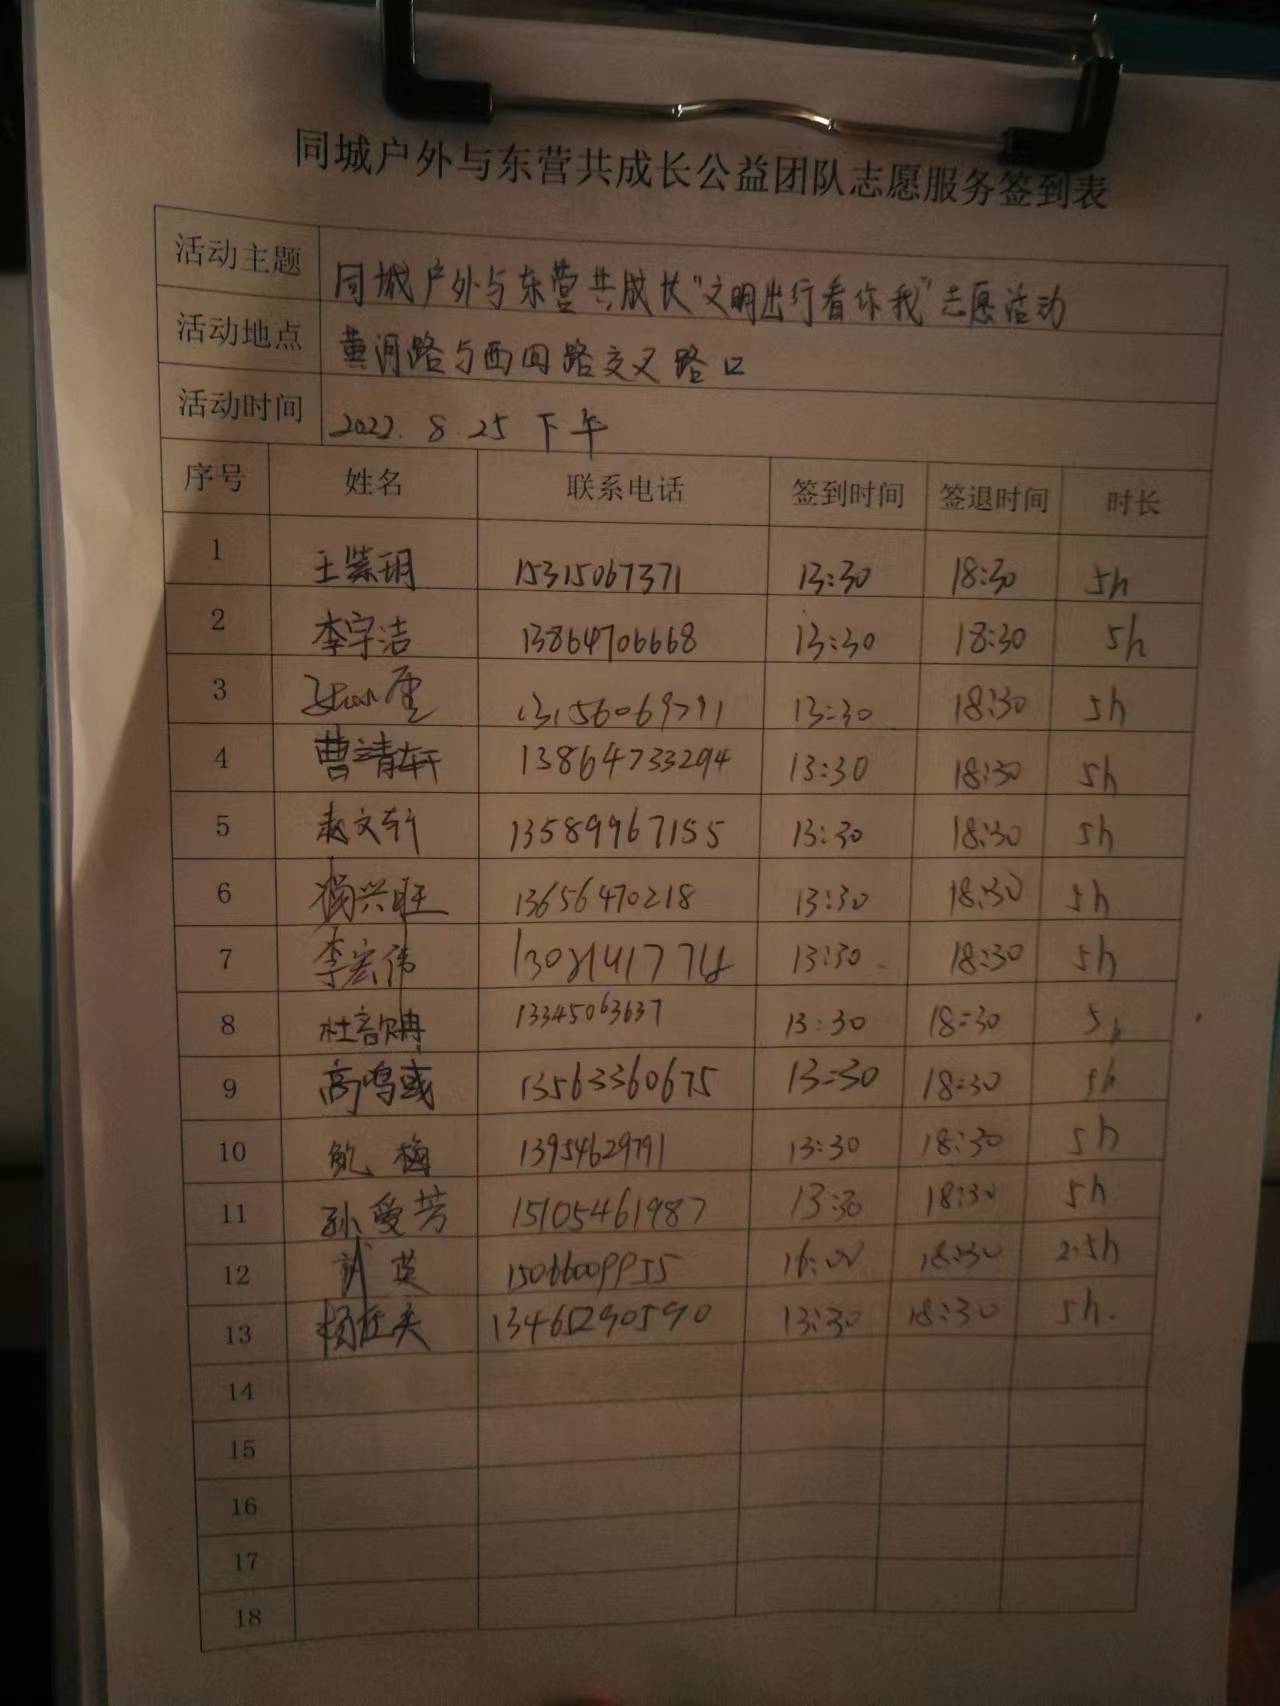 同城户外与东营共成长公益团队志愿服务签到表
活动主题 同城户外与东营共成长"文明出行看你我"志愿活动
活动地点 黄河路与西四路交叉路口
活动时间 2022.8.25下午
序号 姓名 联系电话 签到时间 签退时间 时长
1 王紫玥 15315067371 13:30 18:30 5h
2 李宇洁 13864706668 13:30 18:30 5h
3 13156069791 13:30 18:30 5h
4 曹靖轩 13864733294 13:30 18:30 5h
5 赵文轩 13589967155 13:30 18:30 5h
6 杨兴旺 13656470218 13:30 18:30 5h
7 李宏伟 13:30 18:30 5h
8 13345063637 13:30 18:30 5h
9 高鸣彧 13563360675 13:30 18:30 5h
10 鲍梅 13954629791 13:30 18:30 5h
11 孙爱芳 15105461987 13:30 18:30 5h
12 15066009955 16:00 18:30 2.5h
13 13465290590 13:30 18:30 5h.
14
15
16
17
18